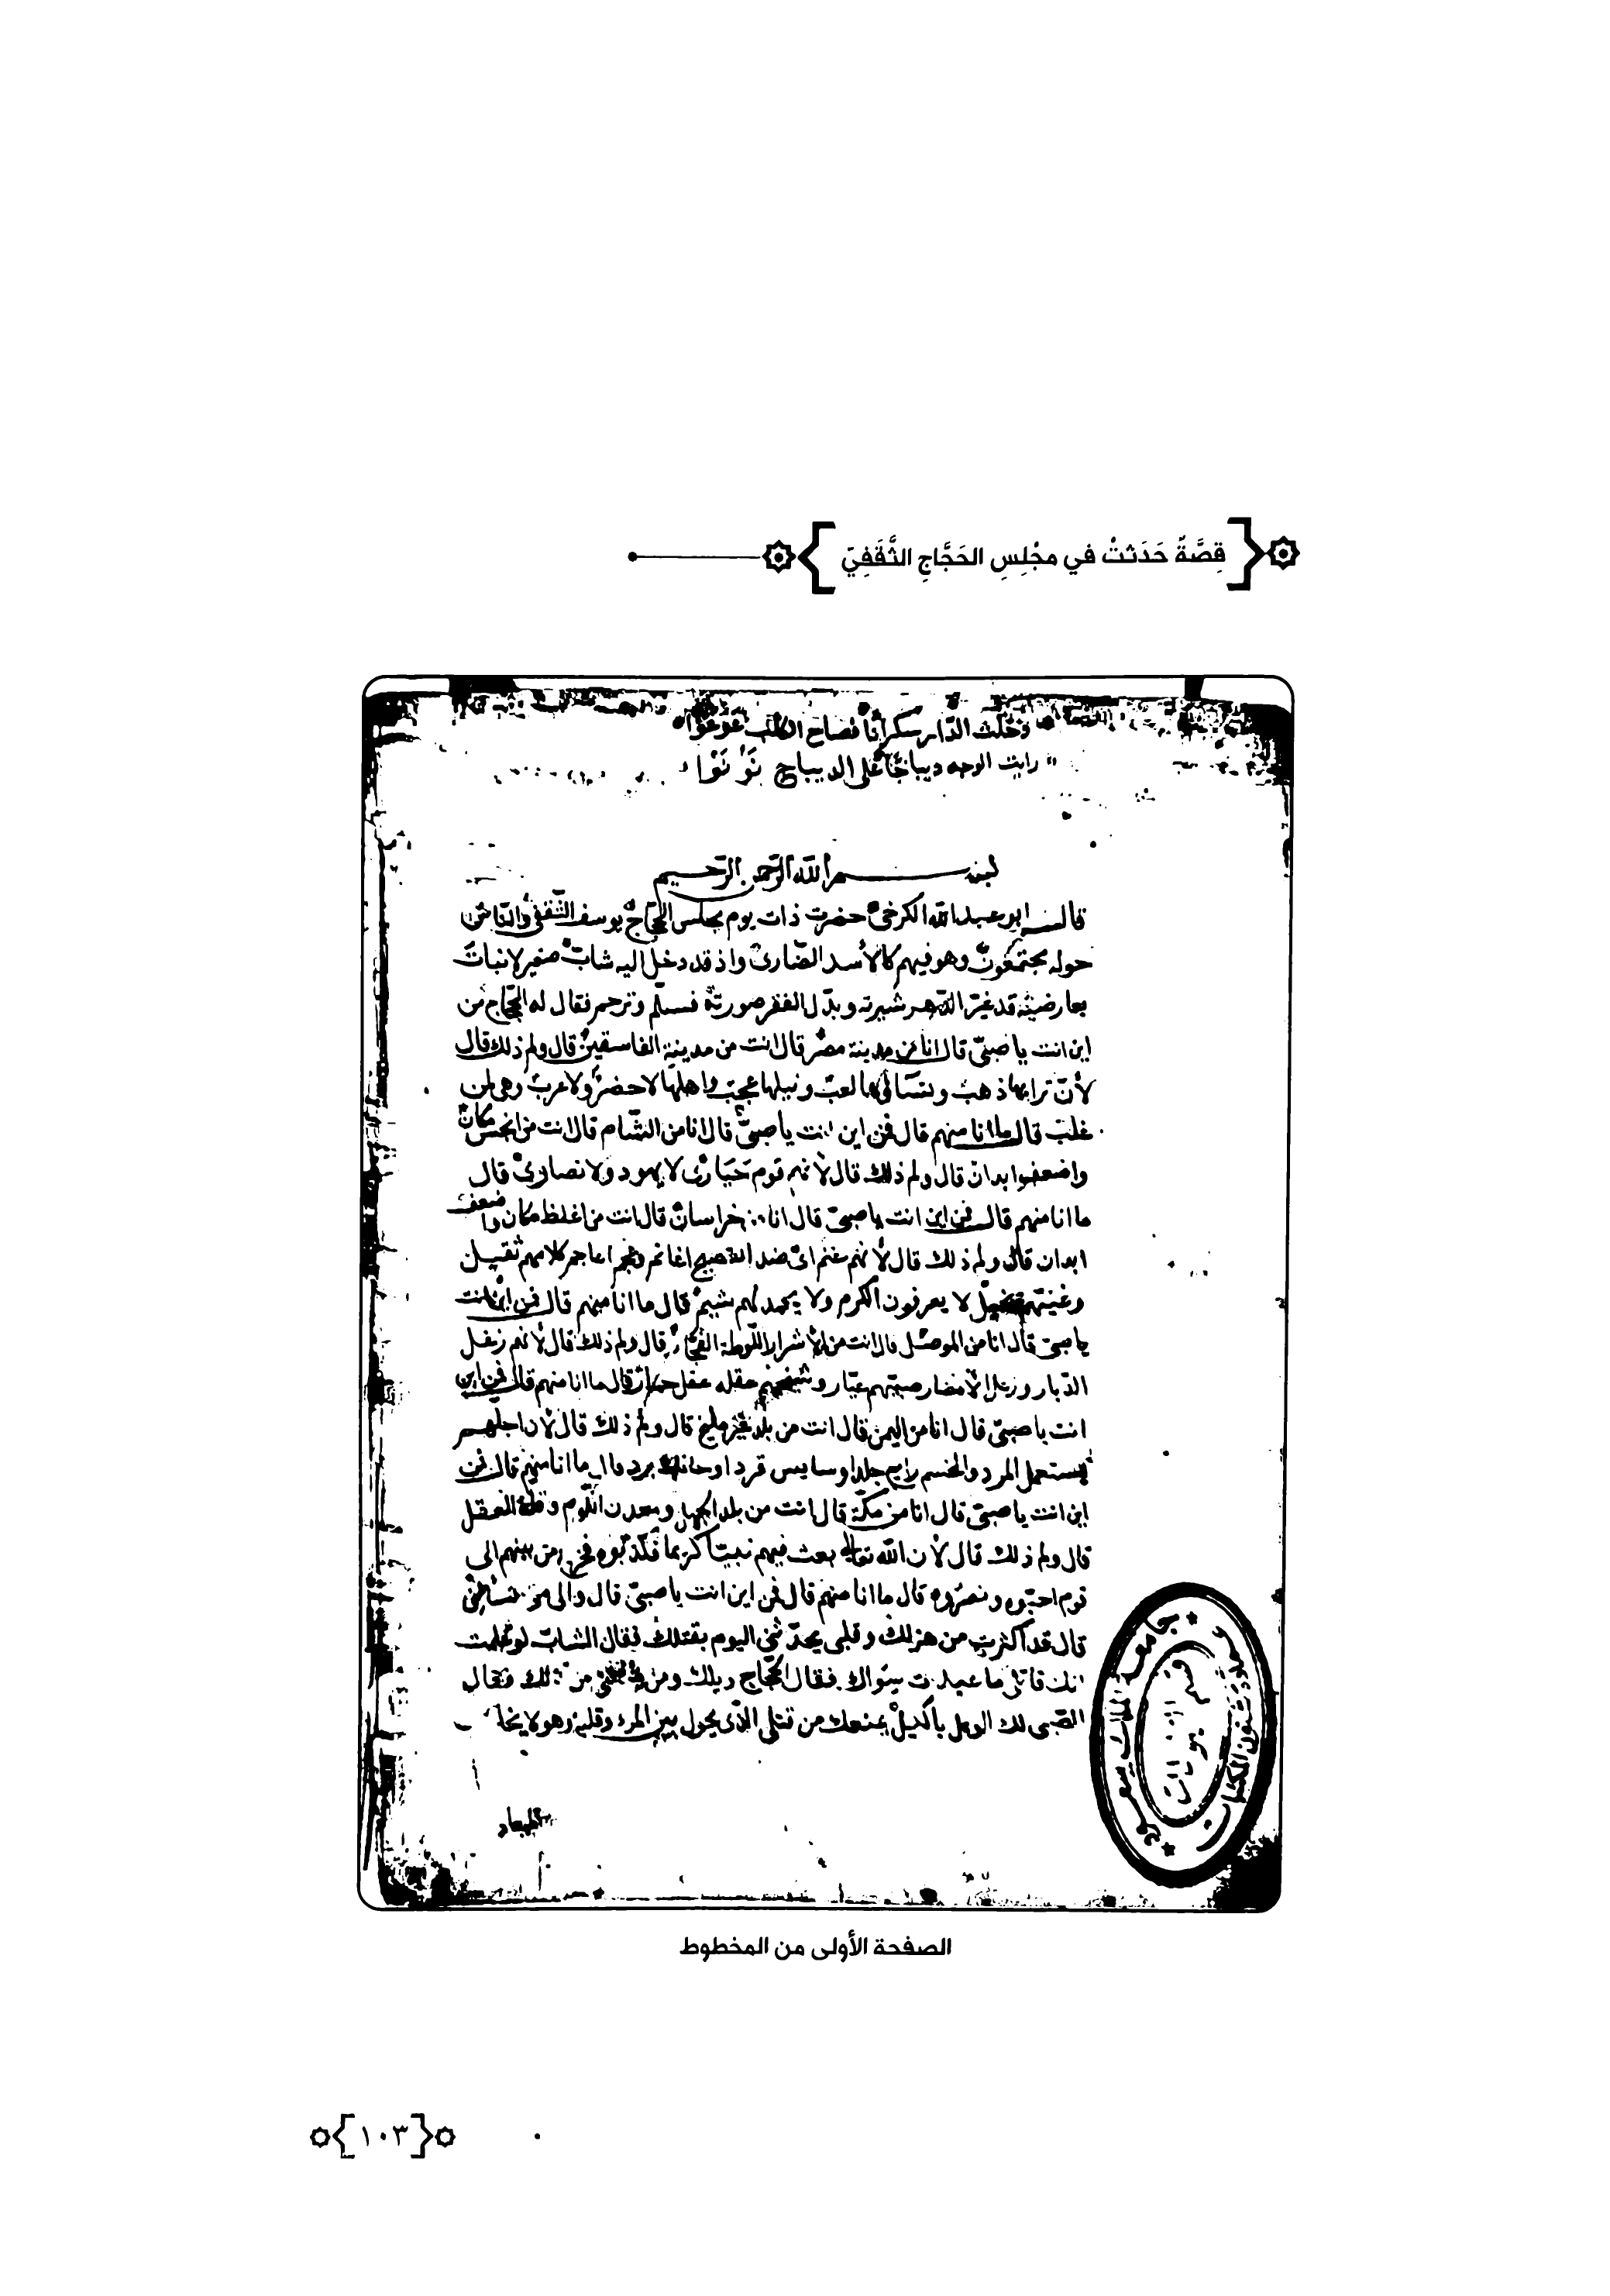 قِصَّةٌ حَدَثتْ في مجْلِسِ الحَجَّاجِ الثَّقَفِيّ
دخلت الدار سكرانا فصاح الكلب عوعوا
رايت الوجه ديباجا على الديباج نَوْ نَوْا
بسم الله الرحمن الرحيم
قال ابو عبد الله الكرخى حضرت ذات يوم مجلس الحجاج يوسف الثقفى والناس
حوله مجتمعون وهو فيهم كالأسد الضارى واذ قد دخل اليه شاب صغير لا نبات
بعارضيه قد غيّر الدهر شبرته وبدّل الفقر صورته فسلّم وترحم فقال له الحجاج من
اين انت يا صبىّ قال انا من مدينة مصر قال انت من مدينة الفاسقين قال ولم ذلك قال
لأنّ ترابها ذهب ونساؤها لعب ونيلها عجب واهلها لا حضر ولا عرب وهى لمن
غلب قال ما انا منهم قال فمن اين انت يا صبىّ قال انا من الشام قال انت من انجس مكان
واضعف ابدان قال ولم ذلك قال لأنهم قوم حَيَارى لا يهود ولا نصارى قال
ما انا منهم قال فمن اين انت يا صبىّ قال انا من خراسان قال انت من اغلظ مكان واضعف
ابدان قال ولم ذلك قال لأنهم غنم اى ضد الفصيح اغانم وعجم اعاجم كلامهم ثقيل
وغنيّهم بخيل لا يعرفون الكرم ولا يحمد لهم شيم قال ما انا منهم قال فمن اين انت
يا صبىّ قال انا من الموصل قال انت من الأشرار اللوطة الفجّار قال ولم ذلك قال لأنهم زغل
الديار وزغل الأمصار صبيّهم عيّار وشيخهم عقله عقل حمار قال ما انا منهم قال فمن اين
انت يا صبىّ قال انا من اليمن قال انت من بلد غير مليح قال ولم ذلك قال لأن اجلهم
يستعمل المرد والخسم دابغ جلد او سايس قرد او حائك برد قال ما انا منهم قال فمن
اين انت يا صبىّ قال انا من مكّة قال انت من بلد الجهل ومعدن اللوم وقلة العقل
قال ولم ذلك قال لأن الله تعالى بعث فيهم نبيّا كريما فكذّبوه فخرج من بينهم الى
قوم احبّوه ونصروه قال ما انا منهم قال فمن اين انت يا صبىّ قال والى متى تسألنى
قال قد اكثرت من هزلك وقلبى يحدّثنى اليوم بقتلك فقال الشابّ لو علمت
انك قاتلى ما عبدت سواك فقال الحجّاج ويلك ومن يمنعنى من ذلك فقال
الصّبى لك الويل يا كليل يمنعك من قتلى الذى يحول بين المرء وقلبه وهو لا يخلف
الميعاد
جامعة الملك سعود
عمادة شئون المكتبات
قسم المخطوطات
الصفحة الأولى من المخطوط
١٠٣